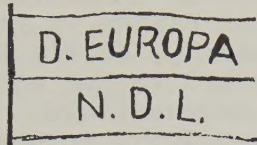 D. EUROPA
N. D. L.